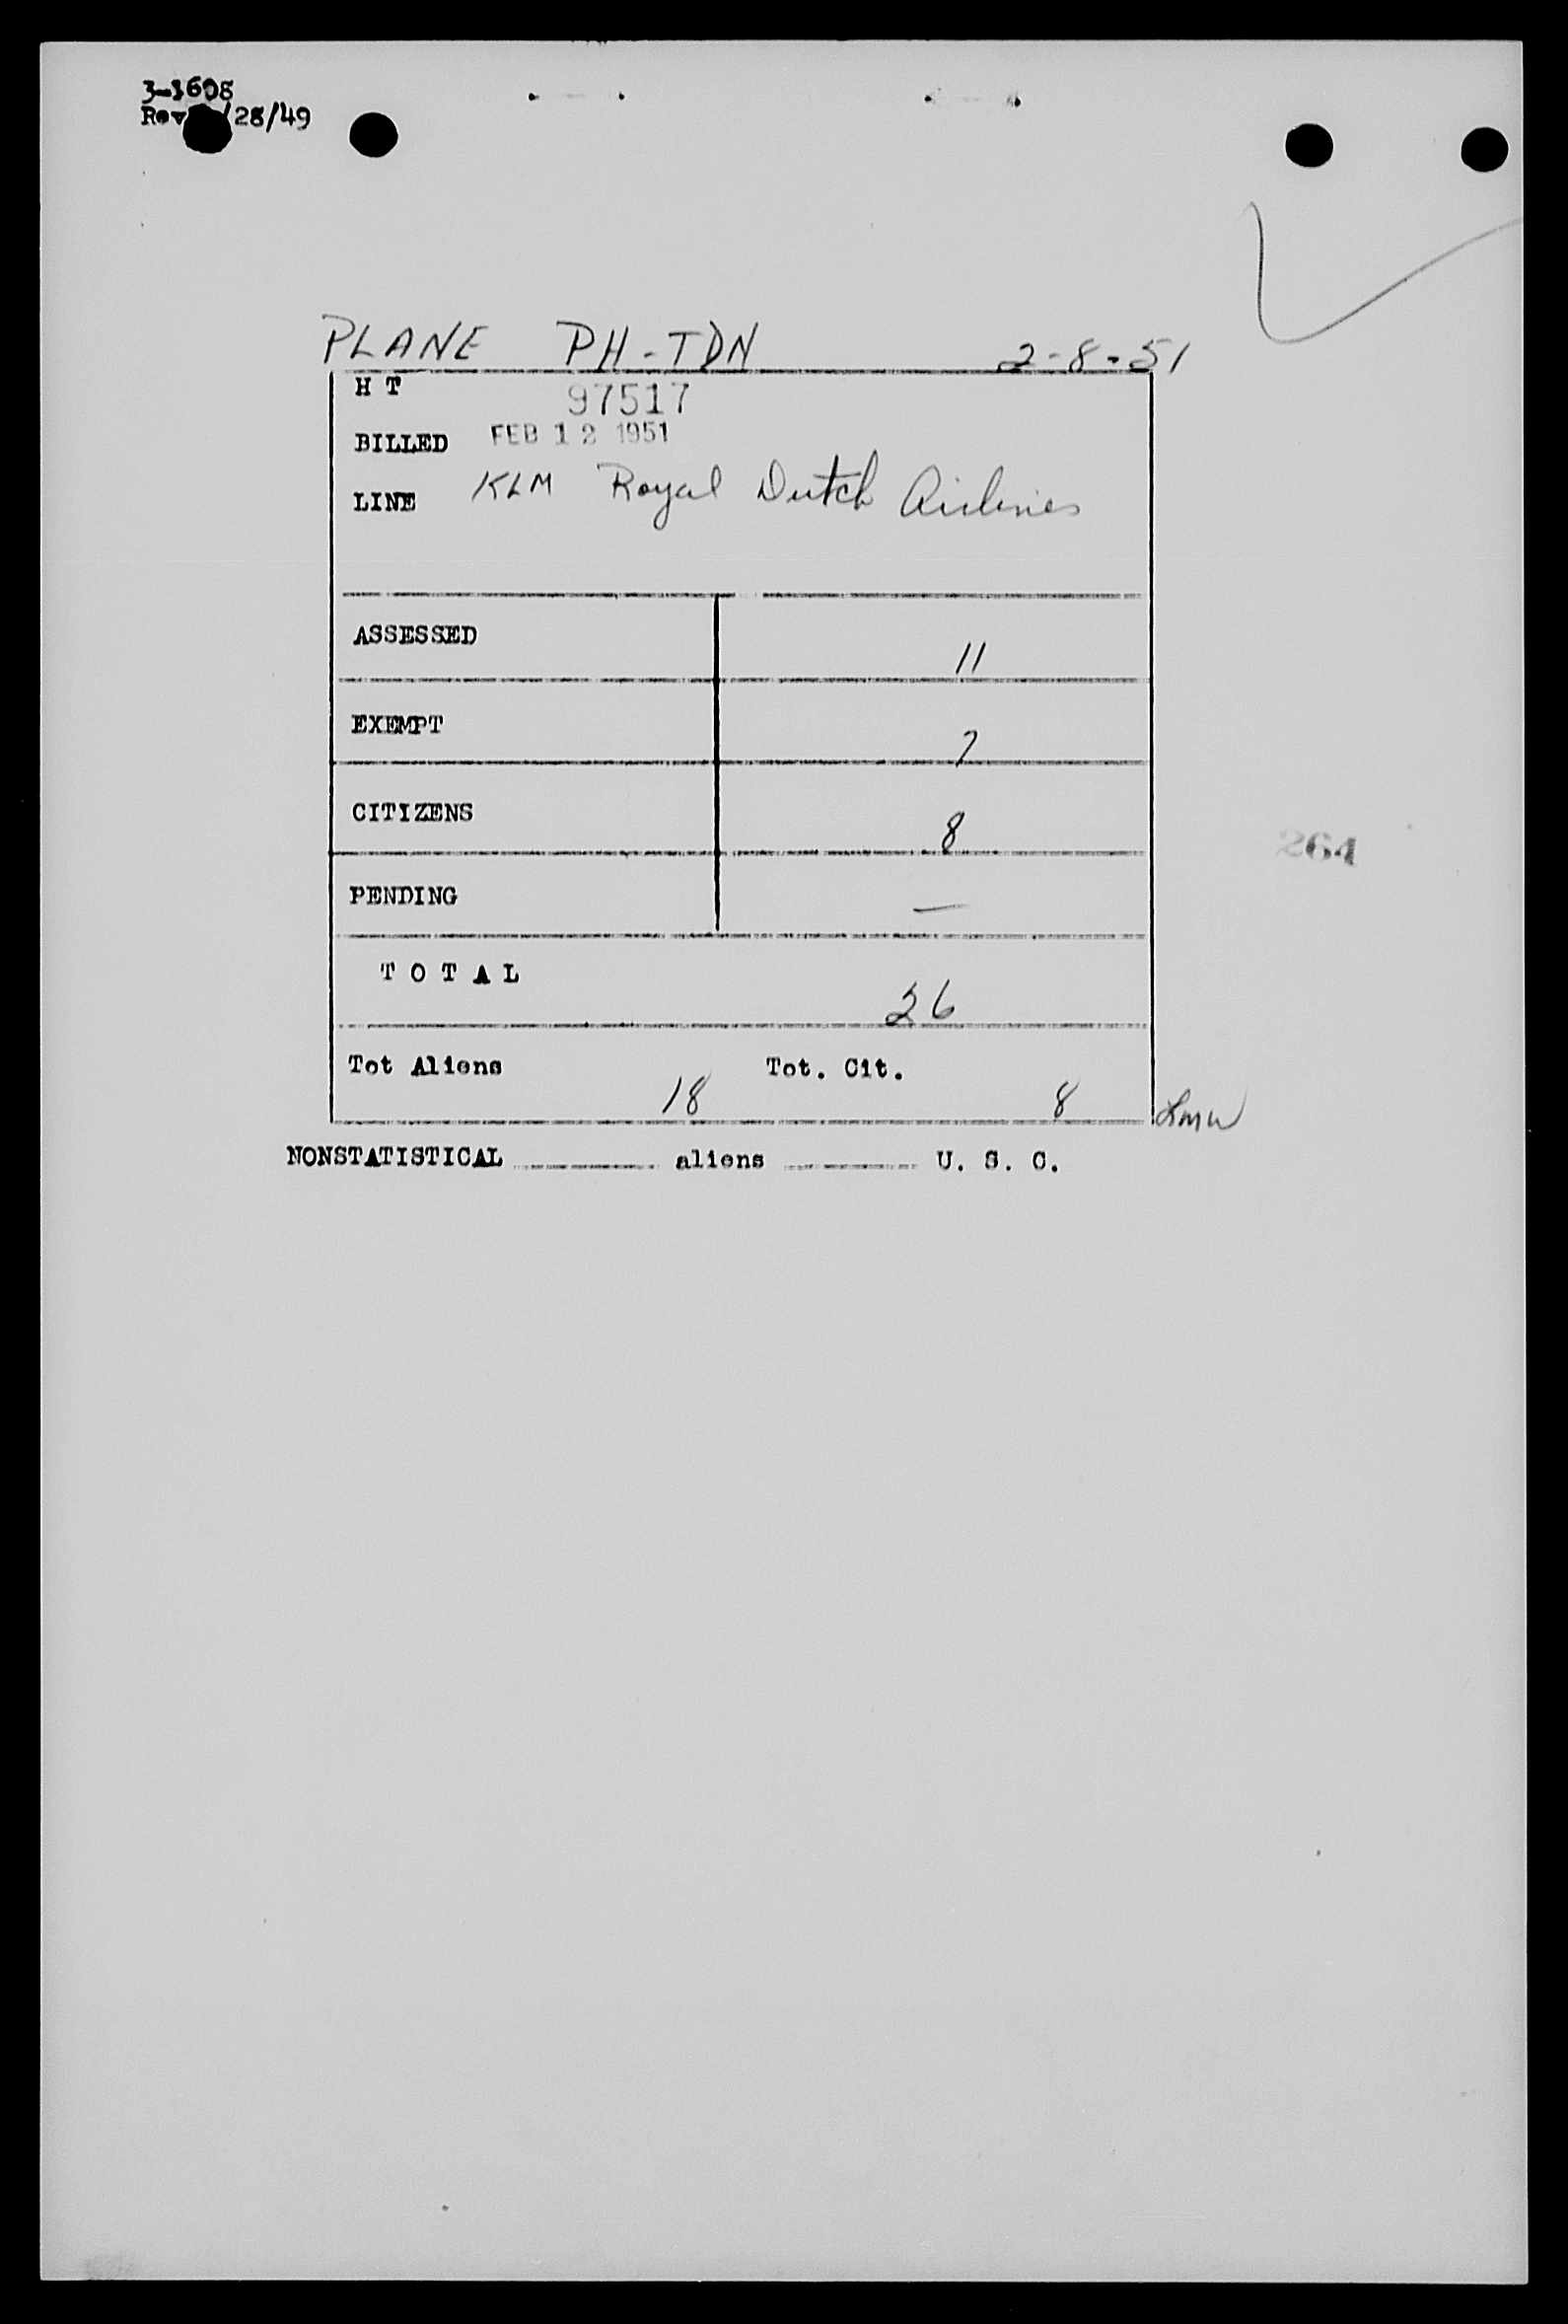 3-3608
Rev /28/49
PLANE PH-TDN 2-8-51
H T 97517
BILLED FEB 12 1951
LINE KLM Royal Dutch Airlines
ASSESSED 11
EXEMPT 7
CITIZENS 8
264
PENDING —
T O T A L 26
Tot Aliens 18 Tot. Cit. 8
NONSTATISTICAL aliens U. S. C.